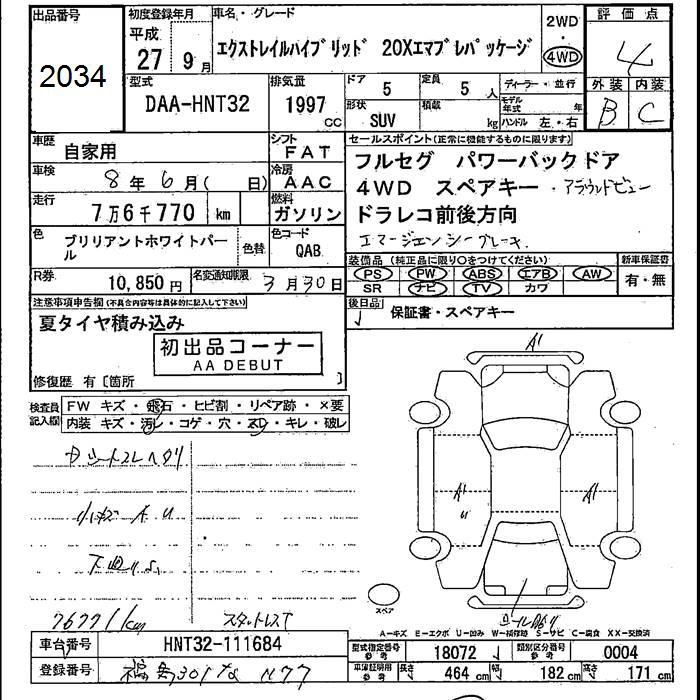 出品番号 初度登録年月 車名・グレード 2WD 評価点
2034 平成 27 9月 エクストレイルハイブリッド 20Xエマブレパッケージ 4WD 4
型式 排気量 ドア 定員 ディーラー・並行 外装 内装
DAA-HNT32 1997 CC 5 5人 モデル年式 年 B C
形状 積載 kg ハンドル 左・右
SUV
車歴 自家用 シフト FAT セールスポイント(正常に機能するものに限ります)
車検 8年6月( 日) 冷房 AAC フルセグ パワーバックドア
走行 7万6千770 km 燃料 ガソリン 4WD スペアキー・アラウンドビュー
色 ブリリアントホワイトパール 色替 色コード QAB ドラレコ前後方向
エマージェンシーブレーキ
R券 10,850円 名変通知期限 3月30日 装備品(純正品に限り○をつけてください) 新車保証書
PS PW ABS エアB AW 有・無
SR ナビ TV カワ
注意事項申告欄(不具合内容等は具体的に記入して下さい) 後日品
夏タイヤ積み込み 保証書・スペアキー
初出品コーナー
AA DEBUT
修復歴 有〔箇所 〕
検査員記入欄 FW キズ・飛石・ヒビ割・リペア跡・×要
内装 キズ・汚レ・コゲ・穴・スレ・キレ・破レ
A1
A1
U
A1
小キズ A.U
下回りS
76771km スタットレスT
スペア
A-キズ E-エクボ U-凹み W-補修跡 S-サビ C-腐食 XX-交換済
車台番号 HNT32-111684 型式指定番号 参考 18072 類別区分番号 参考 0004
登録番号 福島301 車庫証明用 参考 長さ 464 cm 幅 182 cm 高さ 171 cm